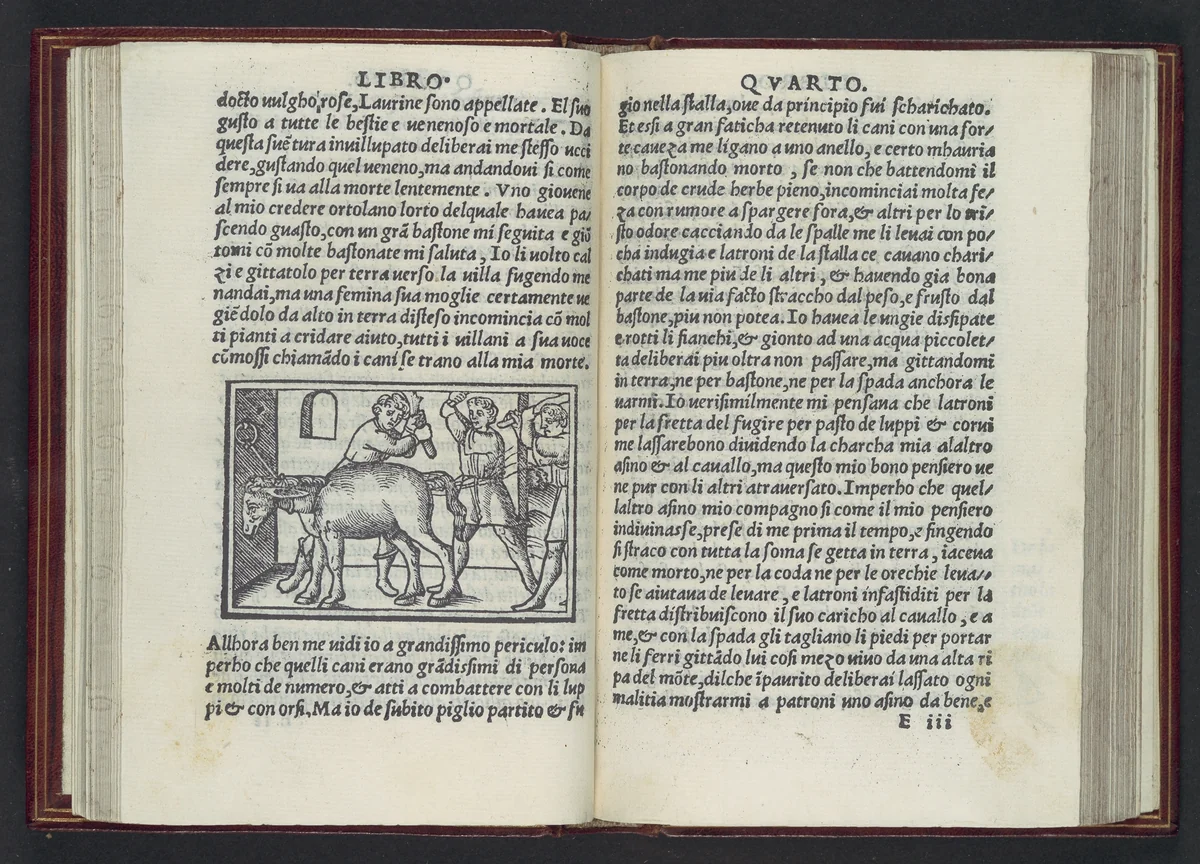 LIBRO·
docto uulgho, rose, Laurine sono appellate. El suo
gusto a tutte le bestie e uenenoso e mortale. Da
questa suẽtura inuillupato deliberai me stesso ucci
dere, gustando quel ueneno, ma andandoui si come
sempre si ua alla morte lentemente. Vno giouene
al mio credere ortolano lorto delquale hauea pa/
scendo guasto, con un grã bastone mi seguita e giõ
tomi cõ molte bastonate mi saluta, Io li uolto cal
zi e gittatolo per terra uerso la uilla fugendo me
nandai, ma una femina sua moglie certamente ue
giẽdolo da alto in terra disteso incomincia cõ mol
ti pianti a cridare aiuto, tutti i uillani a sua uoce
cũmossi chiamãdo i cani se trano alla mia morte.
Allhora ben me uidi io a grandissimo periculo: im
perho che quelli cani erano grãdissimi di persona
e molti de numero, & atti a combattere con li lup
pi & con orsi, Ma io de subito piglio partito & fu
QVARTO.
gio nella stalla, oue da principio fui scharichato.
Et essi a gran faticha retenuto li cani con una for/
te caueza me ligano a uno anello, e certo mhauria
no bastonando morto, se non che battendomi il
corpo de crude herbe pieno, incominciai molta fe/
za con rumore a spargere fora, & altri per lo tri/
sto odore cacciando da le spalle me li leuai con po/
cha indugia e latroni de la stalla ce cauano chari/
chati ma me piu de li altri, & hauendo gia bona
parte de la uia facto straccho dal peso, e frusto dal
bastone, piu non potea. Io hauea le ungie dissipate
e rotti li fianchi, & gionto ad una acqua piccolet/
ta deliberai piu oltra non passare, ma gittandomi
in terra, ne per bastone, ne per la spada anchora le
uarmi. Io uerisimilmente mi pensaua che latroni
per la fretta del fugire per pasto de luppi & corui
me lassarebono diuidendo la charcha mia alaltro
asino & al cauallo, ma questo mio bono pensiero ue
ne pur con li altri atrauersato. Imperho che quel/
laltro asino mio compagno si come il mio pensiero
indiuinasse, prese di me prima il tempo, e fingendo
si straco con tutta la soma se getta in terra, iaceua
come morto, ne per la coda ne per le orechie leua/
to se aiutaua de leuare, e latroni infastiditi per la
fretta distribuiscono il suo caricho al cauallo, e a
me, & con la spada gli tagliano li piedi per portar
ne li ferri gittãdo lui cosi mezo uiuo da una alta ri
pa del mõte, dilche ĩpaurito deliberai lassato ogni
malitia mostrarmi a patroni uno asino da bene, e
E iii